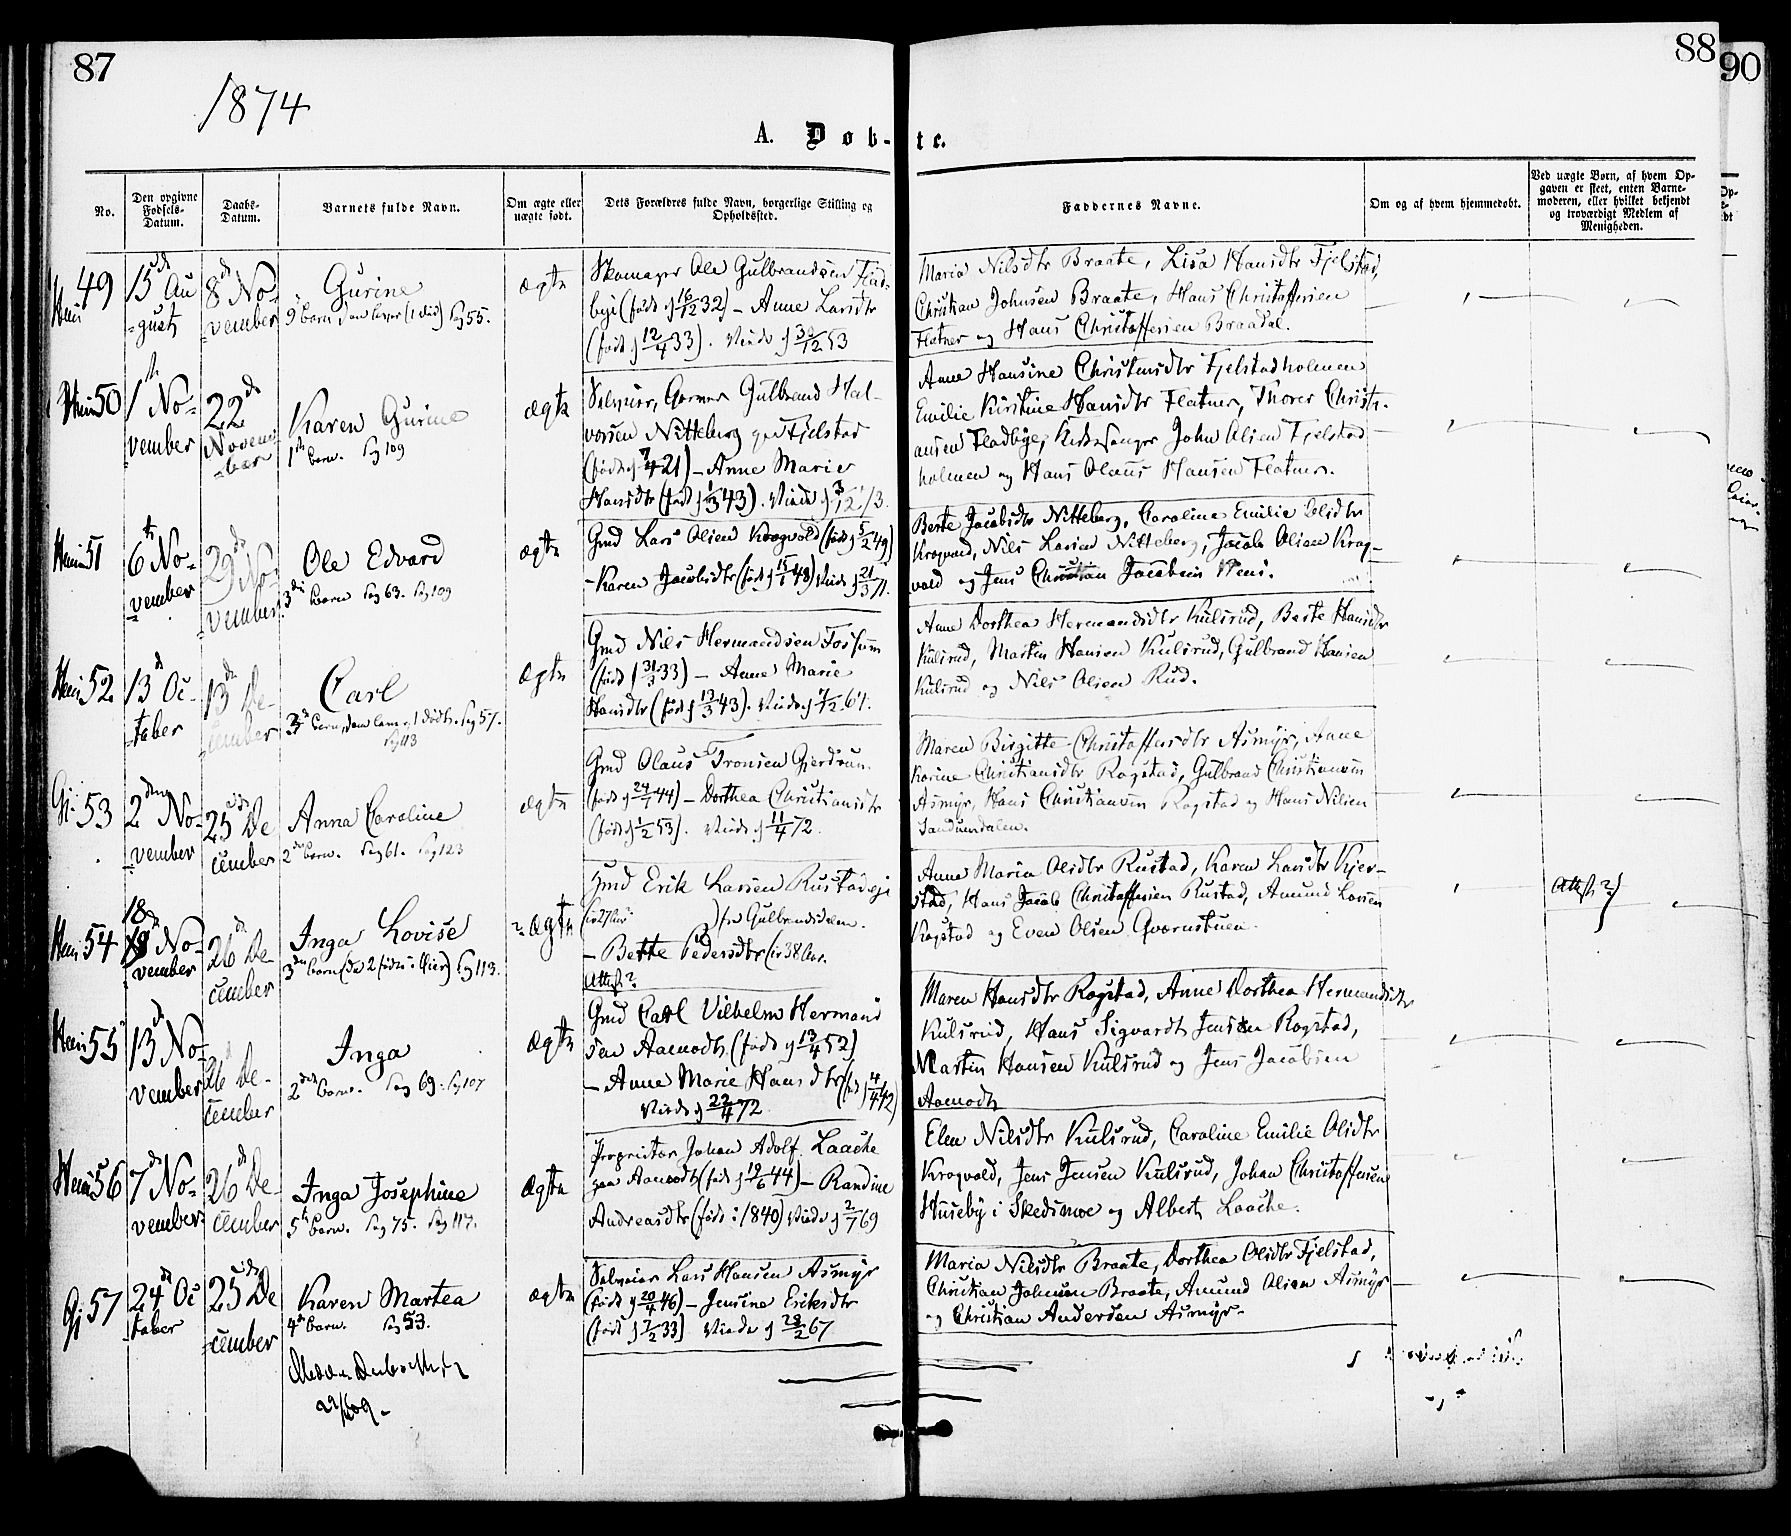 87
88
90
1874
A. Døb-te.
No.
Den opgivne Fødsels-Datum.
Daabs-Datum.
Barnets fulde Navn.
Om ægte eller uægte født.
Dets Forældres fulde Navn, borgerlige Stilling og Opholdssted.
Faddernes Navne.
Om og af hvem hjemmedøbt.
Ved uægte Børn, af hvem Opgaven er skeet, enten Barnemoderen, eller hvilket bekjendt og troværdigt Medlem af Menigheden.
Hem 49
15de Au
=gust
8de No-
vember
Gurine
9de barn den lever (1 død) Pag 55.
ægte
Skomager Ole Gulbrandsen Flad-
bye (født d 16/12 32) – Anne Larsdtr
(født d 12/4 33). Viede d 30/12 53
Maria Nilsdtr Braate, Lisa Hansdtr Fjelstad,
Christian Johnsen Braate, Hans Christoffersen
Flatner og Hans Christoffersen Braadal.
Hem 50
1ste No-
vember
22de
Novem-
=ber
Karen Gurine
1ste barn. Pag 109
ægte
Selveier, Gulbrand Hal-
vorsen Nitteberg paa Fjelstad
(født d 7/4 21) – Anne Marie
Hansdtr (født d 1/3 43). Viede d 3/12 73.
Anne Hansine Christensdtr Fjelstadholmen
Emilie Kirstine Hansdtr Flatner, Thorer Christi-
ansen Fladbye, Kirkesanger John Olsen Fjelstad
holmen og Hans Olaus Hansen Flatner.
Hem 51
6te No-
vember
29de No-
vember
Ole Edvard
3die barn Pag 63. Pag 109
ægte
Gmd Lars Olsen Krogvold (født d 5/2 49)
– Karen Jacobsdtr (født d 15/1 48) Viede d 21/3 71.
Berte Jacobsdtr Nitteberg, Caroline Emilie Olsdtr
Krogvold, Nils Larsen Nitteberg, Jacob Olsen Krog-
vold og Jens Christian Jacobsen Heni.
Hem 52
13de Oc-
tober
13de De-
cember
Carl
3de barn, den lever, 1 død. Pag 57.
Pag 113
ægte
Gmd Nils Hermandsen Fossum
(født d 31/3 33) – Anne Marie
Hansdtr (født d 13/3 43). Viede d 7/12 67.
Anne Dorthea Hermandsdtr Kulsrud, Berte Hansdtr
Kulsrud, Martin Hansen Kulsrud, Gulbrand Hansen
Kulsrud og Nils Olsen Rud.
Gj. 53
2den No-
vember
25de De
cember
Anna Caroline
2det barn. Pag 61. Pag 123
ægte
Gmd Olaus Tronsen Gjerdrum.
(født d 24/1 44) – Dorthea Christiansdtr
(født d 1/2 53). Viede d 11/4 72.
Maren Birgitte Christoffersdtr Asmyr, Anne
Karine Christiansdtr Rogstad, Gulbrand Christiansen
Asmyr, Hans Christiansen Rogstad og Hans Nilsen
Sandumdalen.
Hem 54
18
18de No-
vember
26de De-
cember
Inga Lovise
3die barn (de 2 fødte i Øier) Pag 113.
? ægte
Gmd Erik Larsen Rustadeje
) fra Gulbrandsdalen.
– Berte Pedersdtr cir 38 Aar.
Attest?
Anne Maria Olsdtr Rustad, Karen Larsdtr Kjer-
stad, Hans Jacob Christoffersen Rustad, Amund Larsen
Rogstad og Even Olsen Qvernstuen.
Attest?
Hem 55
13de No-
vember
26de De-
cember
Inga
2det barn. Pag 69. Pag 107
ægte
Gmd Carl Vilhelm Hermand
sen Aamodt (født d 13/4 52)
– Anne Marie Hansdtr (født d 4/4 42)
Viede d 22/4 72.
Maren Hansdtr Rogstad, Anne Dorthea Hermandsdtr
Kulsrud, Hans Sigvardt Jensen Rogstad,
Martin Hansen Kulsrud og Jens Jacobsen
Aamodt
Hem 56
7de No-
vember
26de De-
cember
Inga Josephine
5te barn. Pag 75. Pag 117.
ægte
Proprietær Johan Adolf Laache
paa Aamodt (født d 19/6 44) – Randine
Andreasdtr (født i 1840) Viede d 2/7 69
Elen Nilsdtr Kulsrud, Caroline Emilie Olsdtr
Krogvold, Jens Jensen Kulsrud, Johan Christoffersen
Huseby i Skedsmoe og Albert Laache.
Gj 57
24de Oc
tober
25de De
cember
Karen Martea
4de barn. Pag 53.
ægte
Selveier Lars Hansen Asmyr
(født d 20/4 46) – Jensine Eriksdtr
(født d 7/2 33) Viede d 28/2 67
Maria Nilsdtr Braate, Dorthea Olsdtr Fjelstad,
Christian Johnsen Braate, Amund Olsen Asmyr
og Christian Andersen Asmyr.